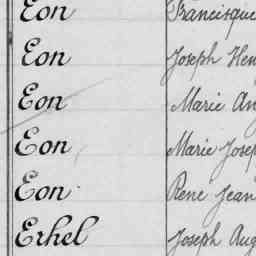 Eon Francisque
Eon Joseph Hen
Eon Marie An
Eon Marie Josep
Eon René Jean
Erhel Joseph Aug